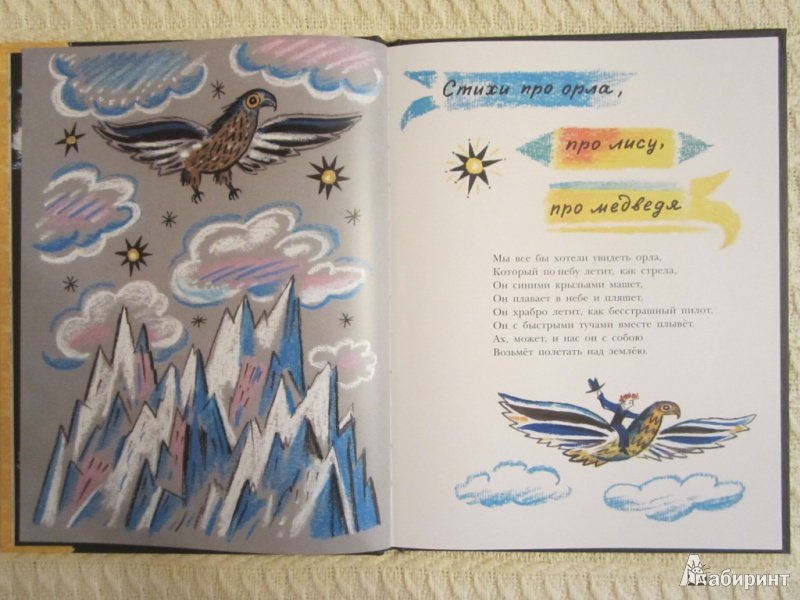 Стихи про орла,
про лису,
про медведя
Мы все бы хотели увидеть орла,
Который по небу летит, как стрела,
Он синими крыльями машет,
Он плавает в небе и пляшет.
Он храбро летит, как бесстрашный пилот,
Он с быстрыми тучами вместе плывёт.
Ах, может, и нас он с собою
Возьмёт полетать над землёю.
Лабиринт